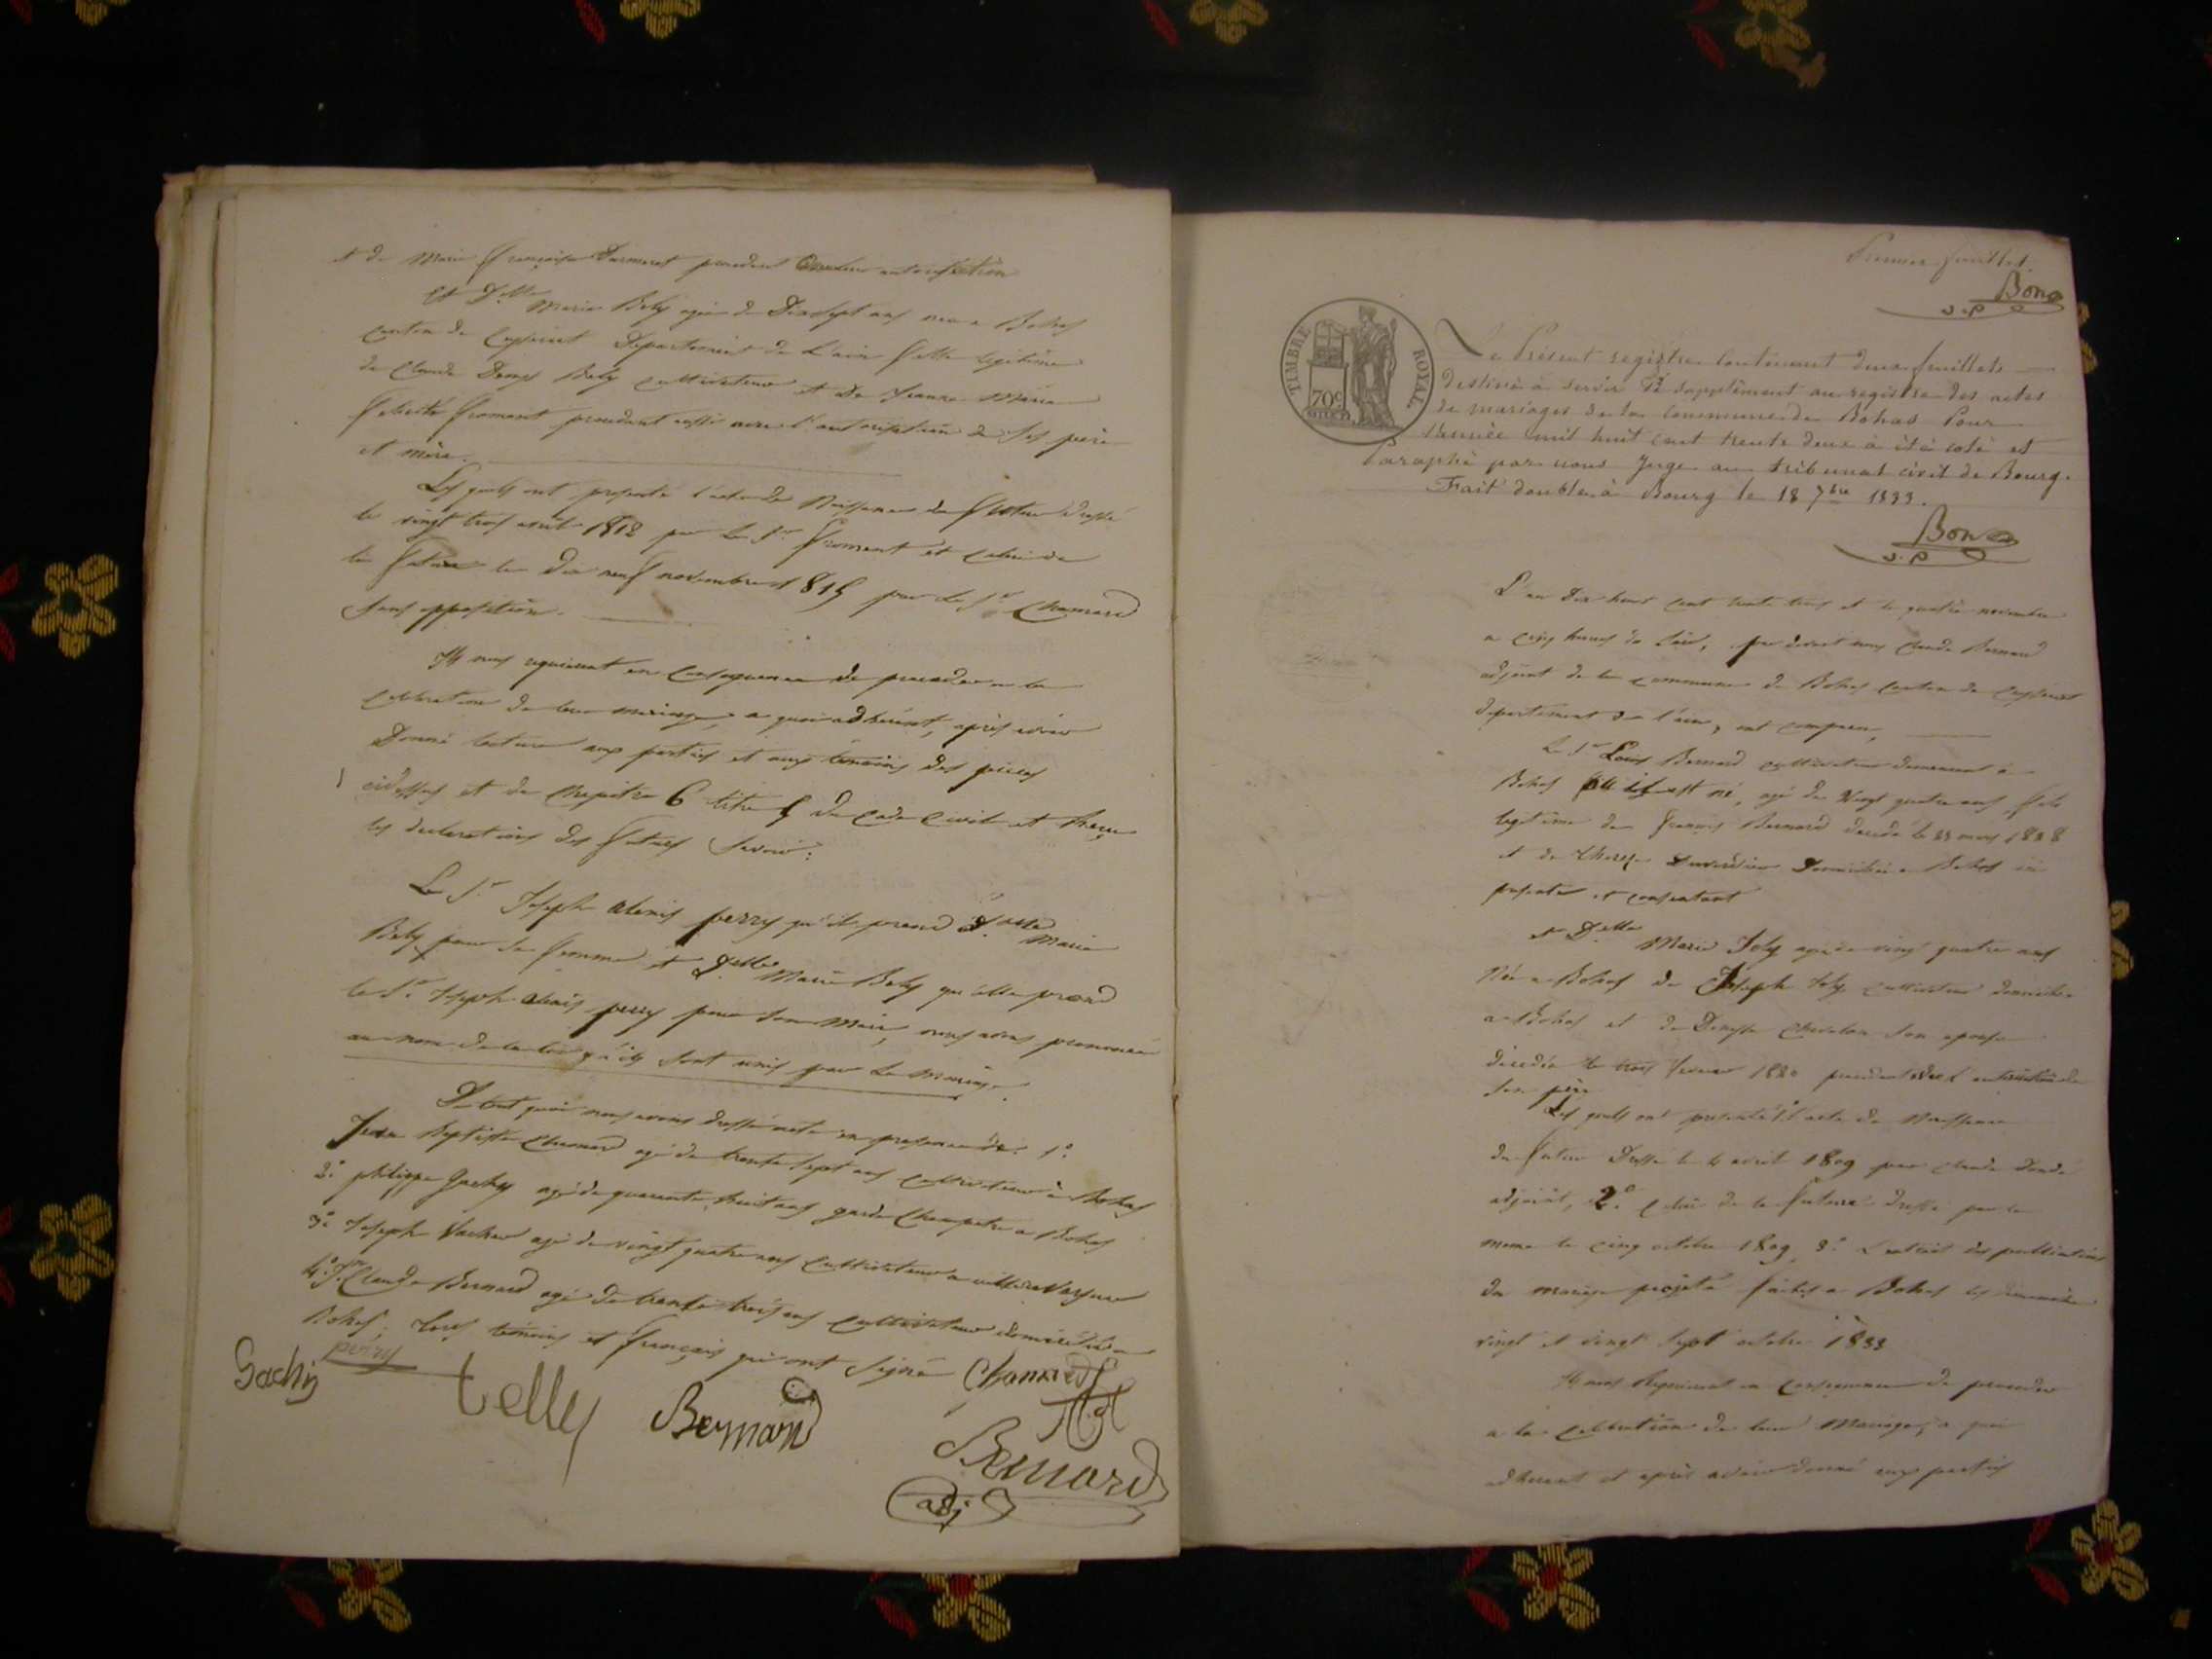 et de Marie Françoise procedant autorisation
Et D.elle Marie Bely agée de Dixsept ans née a Bohas
canton de Ceyzeriat Departement de L'ain fille legitime
de Claude Denys Bely cultivateur et de Jeanne Marie
Felicité Froment procedant aussi avec l'autorisation de ses père
et mère.
Les quels ont presenté l'acte de Naissance du futur dressé
le vingt trois avril 1812 par Le Sr. Froment et celui de
la future le dix neuf novembre 1815 par Le Sr. Chanard
sans opposition.
Ils nous requierent en consequence de proceder a la
celebration de leur mariage, a quoi adherent, après avoir
Donné lecture aux parties et aux temoins des pieces
cidessus et du Chapitre 6 titre 5 du Code Civil et Recu
les declarations des futurs savoir:
Le Sr. Joseph alexis perry qu'il prend D.elle Marie
Bely pour sa femme et D.elle Marie Bely qu'elle prend
le Sr. Joseph alexis perry pour son Mari, nous avons prononcé
au nom de la loi qu'ils sont unis par le mariage.
De tout quoi nous avons dressé acte en presence de: 1°.
Jean Baptiste Chanard agé de trente sept ans cultivateur à Bohas
2°. philippe Gachy agé de quarante huit ans garde Champetre a Bohas
3°. Joseph agé de vingt quatre ans cultivateur a
4°. Sr. Claude Bernard agé de trente trois ans cultivateur domicilié a
Bohas; tous temoins et français qui ont signé Chanard
Gachy perry telley Bernard
Bernard
adj
Premier feuillet.
Bon
TIMBRE ROYAL
70c
Le Présent registre contenant deux feuillets
destiné à servir de supplément au registre des actes
de mariages de la Commune de Bohas Pour
l'année mil huit cent trente deux à été coté et
Paraphé par nous Juge au tribunal civil de Bourg.
Fait double à Bourg le 18 7bre 1833.
Bon
L'an Dix huit cent trente trois et le quatre novembre
a cinq heures du soir, par devant nous Claude Bernard
adjoint de la commune de Bohas canton de Ceyzeriat
departement de l'ain, ont comparu,
Le Sr. Louis Bernard cultivateur demeurant à
Bohas où il est né, agé de Vingt quatre ans fils
legitime de François Bernard decedé le mars
et de Therese Domiciliée a Bohas ici
presente et consentant
et D.elle Marie Joly agée de vingt quatre ans
Née a Bohas de Joseph Joly cultivateur domicilié
a Bohas et de Denyse son epouse
decedée le trois 1820 procedant avec l'autorisation de
son père
Les quels ont presenté 1° l'acte de Naissance
du futur Dressé le 4 avril 1809 par Claude
adjoint, 2°. celui de la future dressé par le
meme le cinq octobre 1809 3°. L'extrait des publications
du mariage projeté faites a Bohas les dimanches
vingt et vingt sept octobre 1833
Ils nous Requierent en consequence de proceder
a la celebration de leur Mariage, a quoi
adherent et après avoir donné aux parties